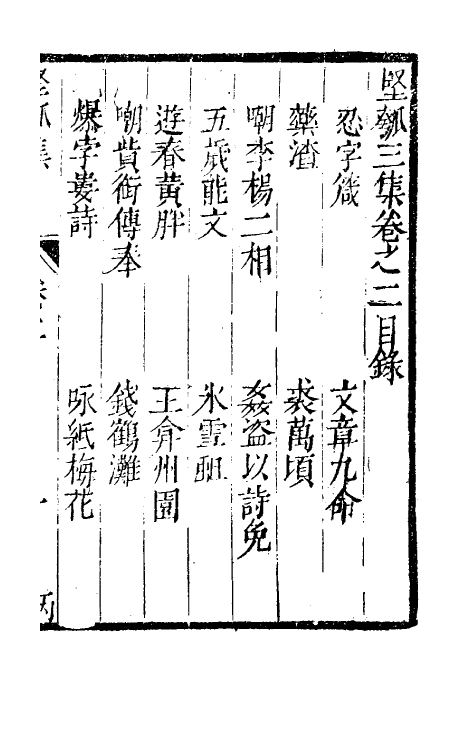 堅瓠三集卷之二目錄
忍字箴　文章九命
藥渣　裘萬頃
嘲李楊二相　姦盜以詩免
五歲能文　氷雪𨈭
遊春黃胖　王弇州園
嘲貲銜傳奉　錢鶴灘
爆字婁詩　咏紙梅花
堅瓠集　卷二　一